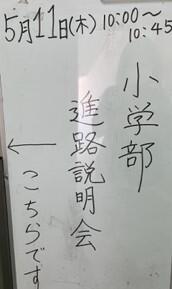 5月11日(木)10:00〜10:45
小学部
進路説明会
←こちらです